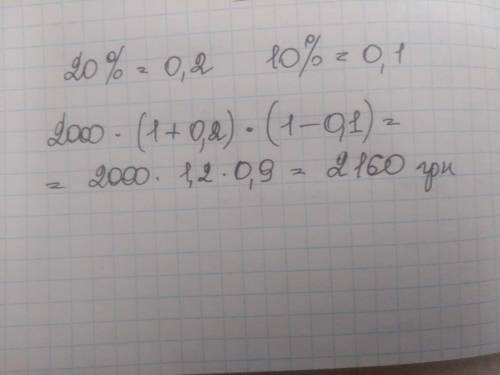 20% = 0,2 10% = 0,1
2000 · (1+0,2) · (1-0,1) =
= 2000 · 1,2 · 0,9 = 2160 грн